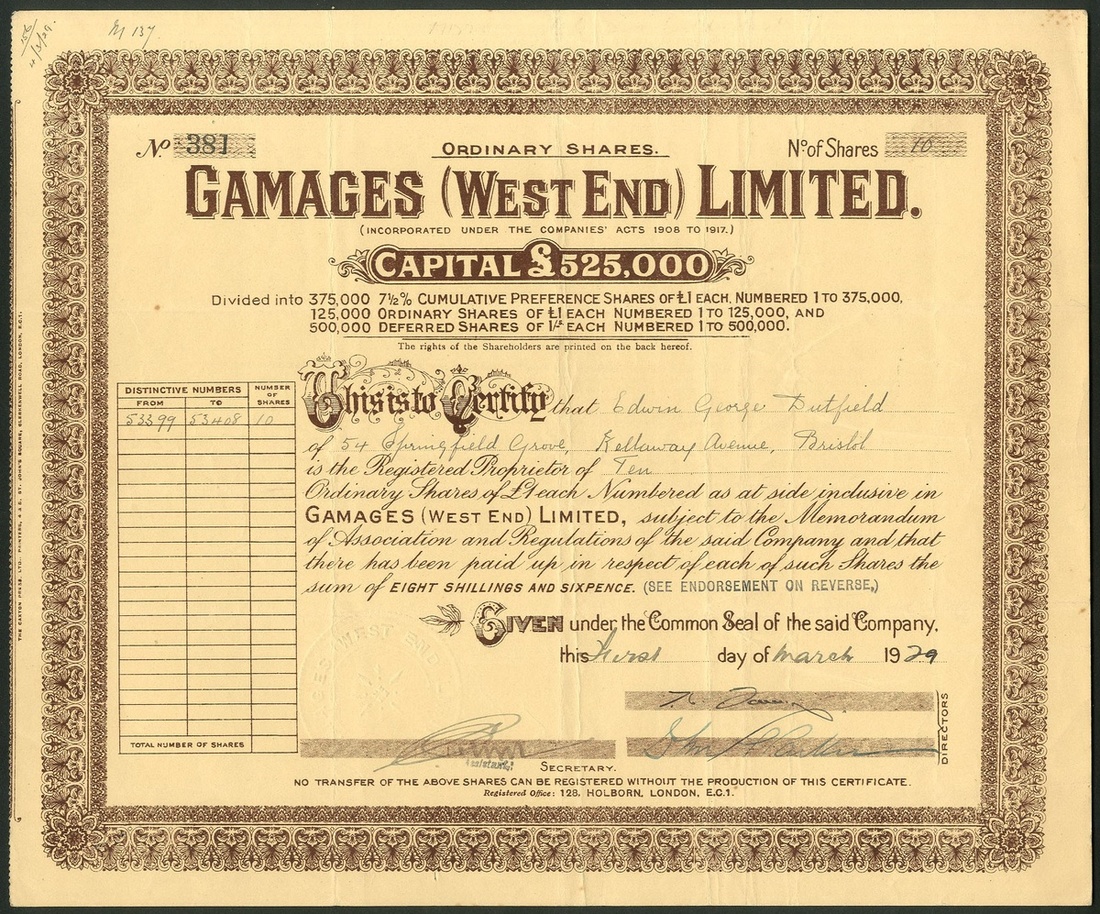 M 137
No. 381
ORDINARY SHARES.
No of Shares 10
GAMAGES (WEST END) LIMITED.
(INCORPORATED UNDER THE COMPANIES' ACTS 1908 TO 1917.)
CAPITAL £525,000
Divided into 375,000 7½% CUMULATIVE PREFERENCE SHARES OF £1 EACH, NUMBERED 1 TO 375,000,
125,000 ORDINARY SHARES OF £1 EACH NUMBERED 1 TO 125,000, AND
500,000 DEFERRED SHARES OF 1/- EACH NUMBERED 1 TO 500,000.
The rights of the Shareholders are printed on the back hereof.
DISTINCTIVE NUMBERS
FROM TO
NUMBER OF SHARES
53399 53408 10
TOTAL NUMBER OF SHARES
This is to Certify that Edwin George Dutfield
of 54 Springfield Grove, Kellaway Avenue, Bristol
is the Registered Proprietor of Ten
Ordinary Shares of £1 each Numbered as at side inclusive in
GAMAGES (WEST END) LIMITED, subject to the Memorandum
of Association and Regulations of the said Company and that
there has been paid up in respect of each of such Shares the
sum of EIGHT SHILLINGS AND SIXPENCE. (SEE ENDORSEMENT ON REVERSE,)
GIVEN under the Common Seal of the said Company.
this first day of March 1929
WEST END
DIRECTORS
SECRETARY.
NO TRANSFER OF THE ABOVE SHARES CAN BE REGISTERED WITHOUT THE PRODUCTION OF THIS CERTIFICATE.
Registered Office: 128, HOLBORN, LONDON, E.C.1.
THE CAXTON PRESS, LTD., PRINTERS, 4 & 5, ST. JOHN'S SQUARE, CLERKENWELL ROAD, LONDON, E.C.1.